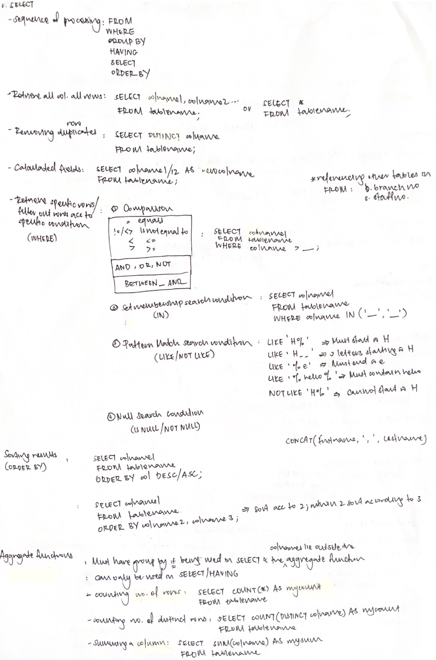 1. SELECT
- sequence of processing: FROM
WHERE
GROUP BY
HAVING
SELECT
ORDER BY
- Retrieve all col. all rows: SELECT colname1, colname2... or SELECT *
FROM tablename; FROM tablename;
row
- Removing duplicates: SELECT DISTINCT colname
FROM tablename;
- Calculated fields: SELECT colname1/12 AS newcolname
FROM tablename;
* referencing other tables in
FROM: b.branchno
s.staffno.
- Retrieve specific rows/
filter out rows acc to
specific condition
(WHERE)
① Comparison
= equals
!=/<> is not equal to
< <=
> >=
AND, OR, NOT
BETWEEN _ AND _
: SELECT colname1
FROM tablename
WHERE colname > __;
② Set membership search condition : SELECT colname1
(IN) FROM tablename
WHERE colname IN ('_', '_')
③ Pattern Match search condition : LIKE 'H%' ⇒ Must start w H
(LIKE/NOT LIKE) LIKE 'H__' ⇒ 3 letters starting w H
LIKE '%e' ⇒ Must end w e
LIKE '%hello%' ⇒ Must contain hello
NOT LIKE 'H%' ⇒ cannot start w H
④ Null search condition
(IS NULL/NOT NULL)
CONCAT(firstname, ' ', lastname)
Sorting results : SELECT colname1
(ORDER BY) FROM tablename
ORDER BY col DESC/ASC;
: SELECT colname1
FROM tablename ⇒ sort acc to 2; within 2 sort according to 3
ORDER BY colname2, colname3;
colnames lie outside the
Aggregate functions : Must have group by if being used on SELECT & the aggregate function
: can only be used on SELECT/HAVING
- counting no. of rows: SELECT COUNT(*) AS mycount
FROM tablename
- counting no. of distinct rows: SELECT COUNT(DISTINCT colname) AS mycount
FROM tablename
- summing a column: SELECT SUM(colname) AS mysum
FROM tablename